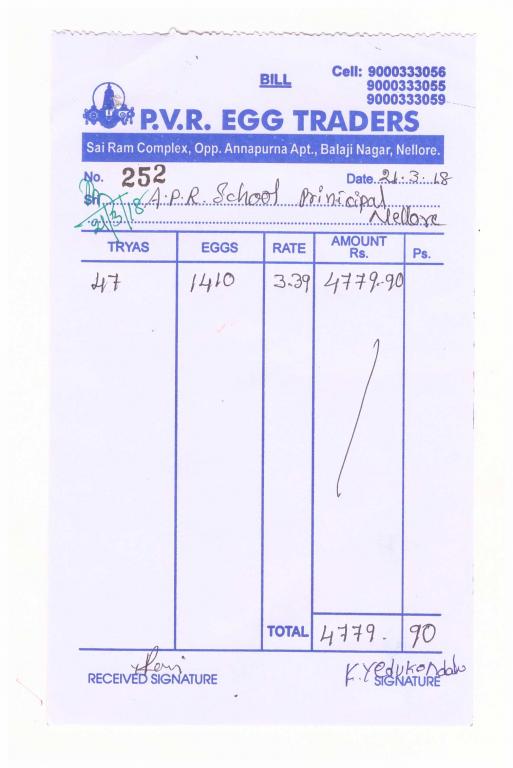 BILL
Cell: 9000333056
9000333055
9000333059
P.V.R. EGG TRADERS
Sai Ram Complex, Opp. Annapurna Apt., Balaji Nagar, Nellore.
No. 252 Date. 21.3.18
Sri A.P.R. School Prinicipal
21/3/18 Nellore
TRYAS EGGS RATE AMOUNT Rs. Ps.
47 1410 3.39 4779-90
TOTAL 4779. 90
K. Yedukondalu
RECEIVED SIGNATURE SIGNATURE